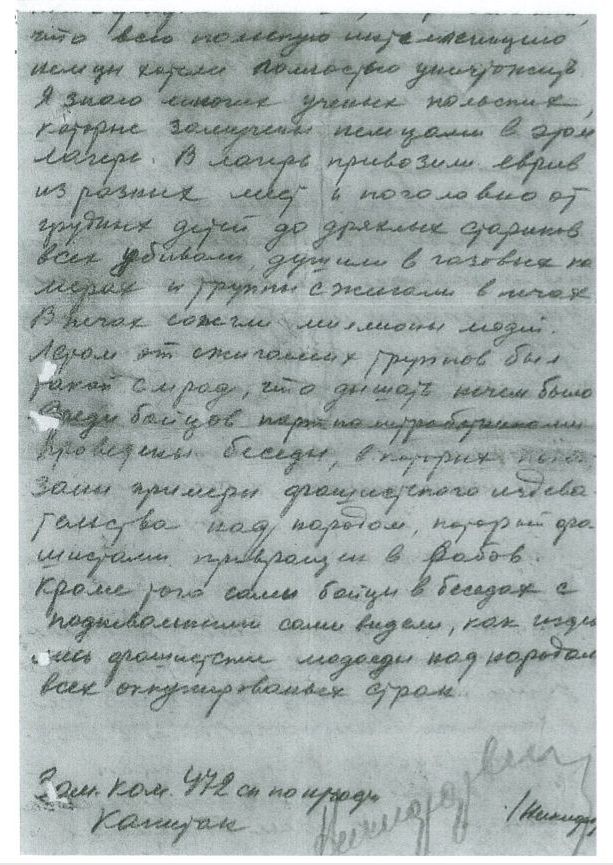 что всю польскую интелигенцию
немцы хотели полностью уничтожить.
Я знаю многих ученых польских,
которые замучены немцами в этом
лагере. В лагерь привозили евреев
из разных мест и поголовно от
грудных детей до дряхлых стариков
всех убивали, душили в газовых ка
мерах и трупы сжигали в печах
В печах сожгли милионы людей.
Летом от сжигаемых трупов был
такой смрад, что дышать нечем было
Среди бойцов партполитработниками
проведены беседы, в которых пока
заны примеры фашистского издева
тельства над народом, который фа
шистами превращен в рабов.
Кроме того сами бойцы в беседах с
сами видели, как изде
лись фашистские людоеды над народом
всех оккупированых стран.
Зам. ком. 472 сп по
Капитан